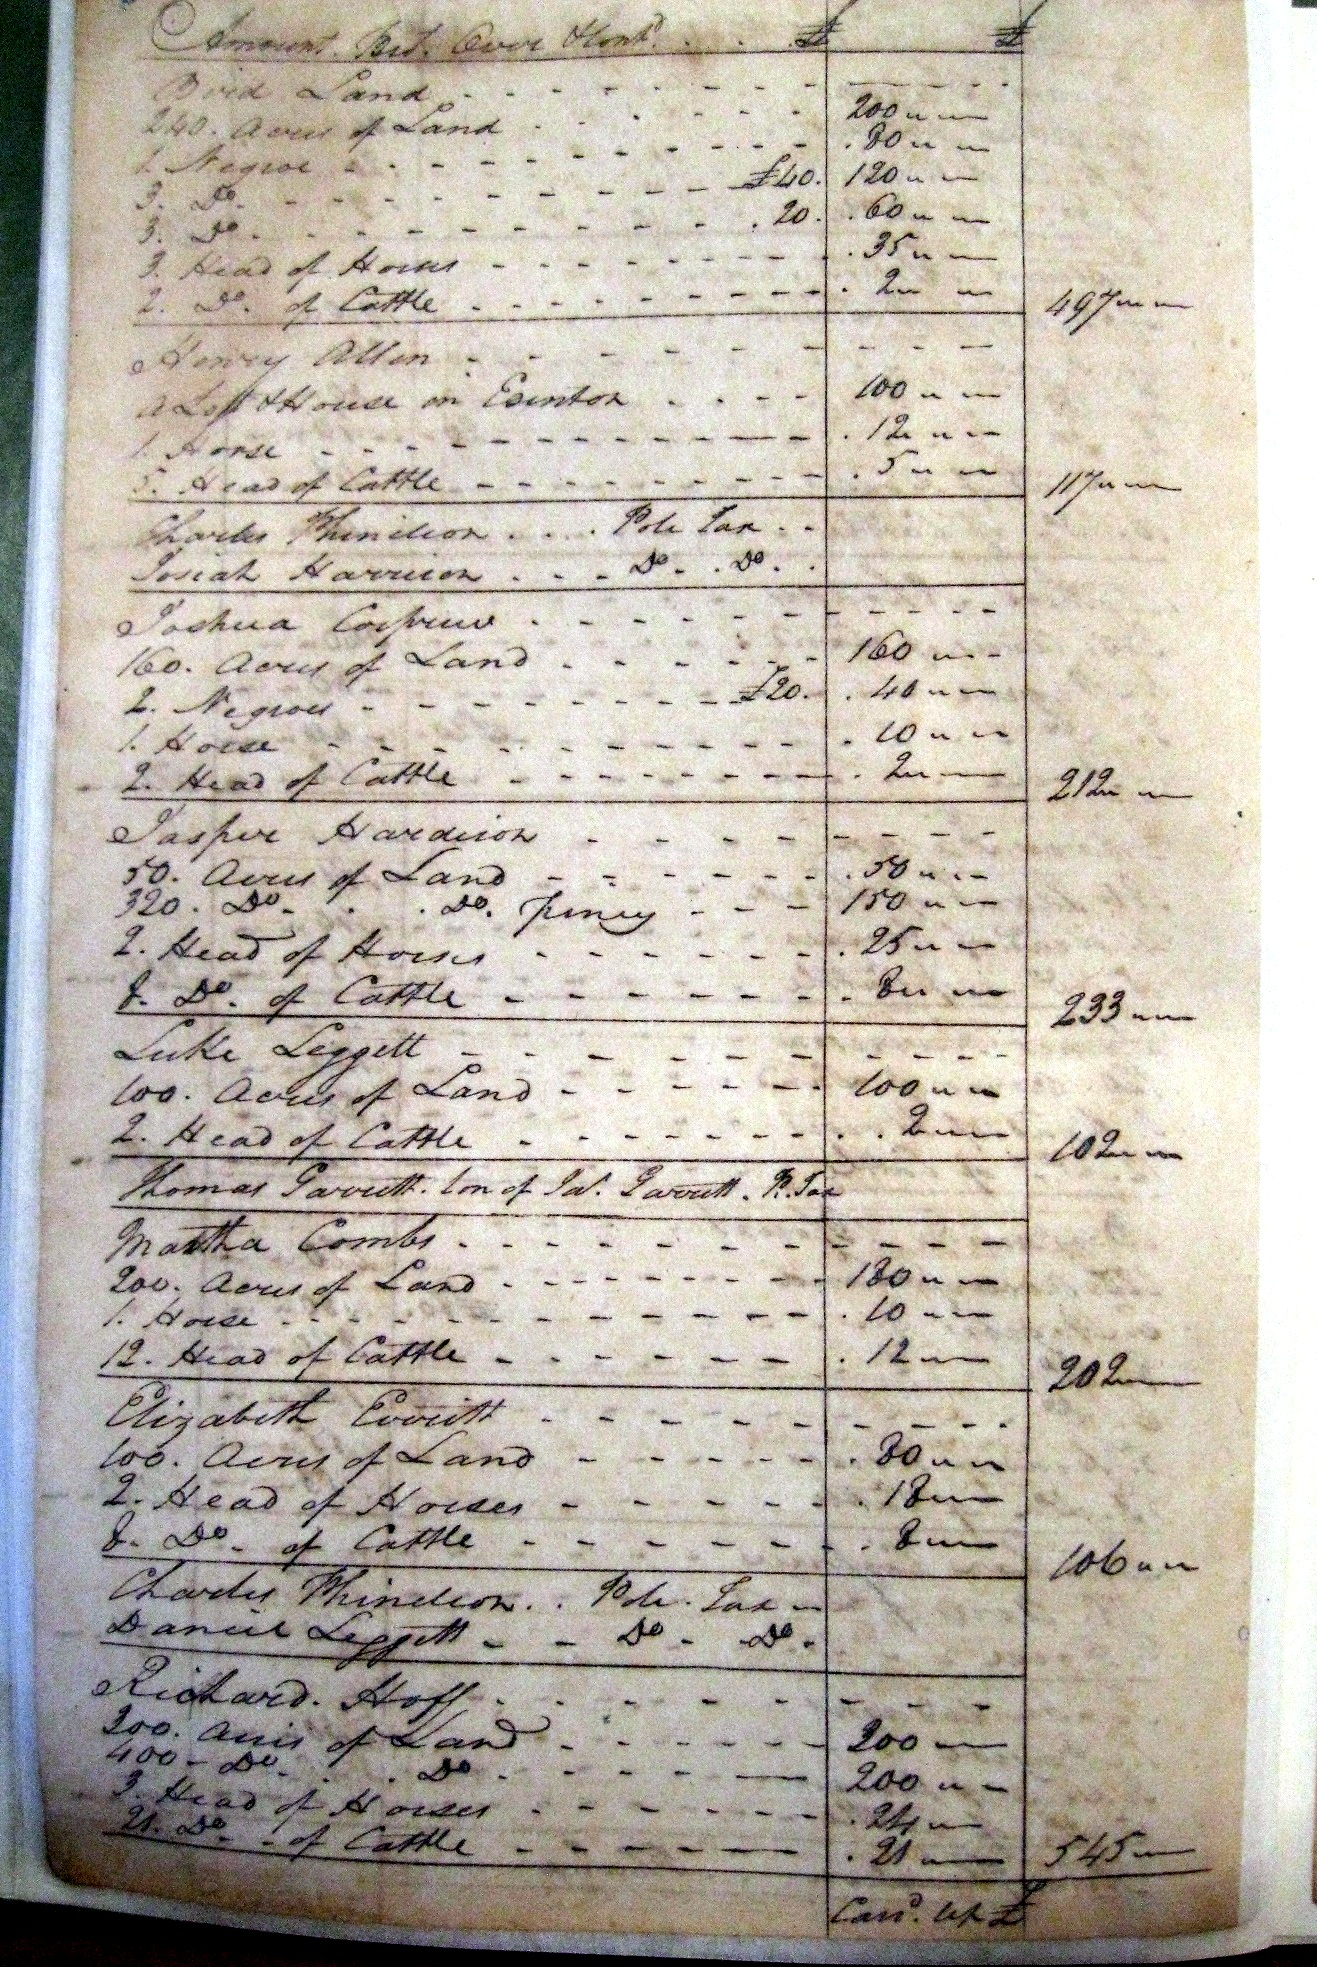 Amount Brt. Over & Cont.d . . £ £
Bird Land - - - - - - - -
240. Acres of Land - - - - - 200 " "
1. Negroe - - - - - - - - . 80 " "
3. Do. - - - - - - - £40. 120 " "
3. Do. - - - - - - - . 20. . 60 " "
3. Head of Horses - - - - - - - . 35 " "
2. Do. of Cattle - - - - - - - - . 2 " " 497 " "
Henry Allen - - - - - - - -
a Lott & House in - - - - 100 " "
1. Horse - - - - - - - - . 12 " "
5. Head of Cattle - - - - - - - - . 5 " " 117 " "
Charles . . . . Pole Tax . .
Josiah Harrison . . . Do. . Do. .
Joshua - - - - - - - -
160. Acres of Land - - - - - - 160 " "
2. Negroes - - - - - - - £20. . 40 " "
1. Horse - - - - - - - - . 10 " "
2. Head of Cattle - - - - - - - . 2 " " 212 " "
Jasper Hardison - - - - - - - -
50. Acres of Land - - - - - - . 50 " "
320. Do. . . Do. piney - - - 150 " "
2. Head of Horses - - - - - - . 25 " "
8. Do. of Cattle - - - - - - - . 8 " " 233 " "
Luke Leggett - - - - - - - -
100. Acres of Land - - - - - - 100 " "
2. Head of Cattle - - - - - - - . . 2 " " 102 " "
Thomas Garrett. Son of Jas. Garrett. P. Tax
Martha Combs - - - - - - - -
200. Acres of Land - - - - - - - 180 " "
1. Horse - - - - - - - - . 10 " "
12. Head of Cattle - - - - - - . 12 " " 202 " "
Elizabeth Everitt - - - - - - - -
100. Acres of Land - - - - - . 80 " "
2. Head of Horses - - - - - - . 18 " "
8. Do. of Cattle - - - - - - . 8 " " 106 " "
Charles . . Pole Tax -
Daniel Leggett - - Do. - Do. .
Richard Hoff - - - - - - - -
200. Acres of Land - - - - - 200 " "
400 - Do. . . Do. - - - - - 200 " "
3. Head of Horses - - - - - - - . 24 " "
21. Do. - of Cattle - - - - - - . 21 " " 545 " "
Card. up £